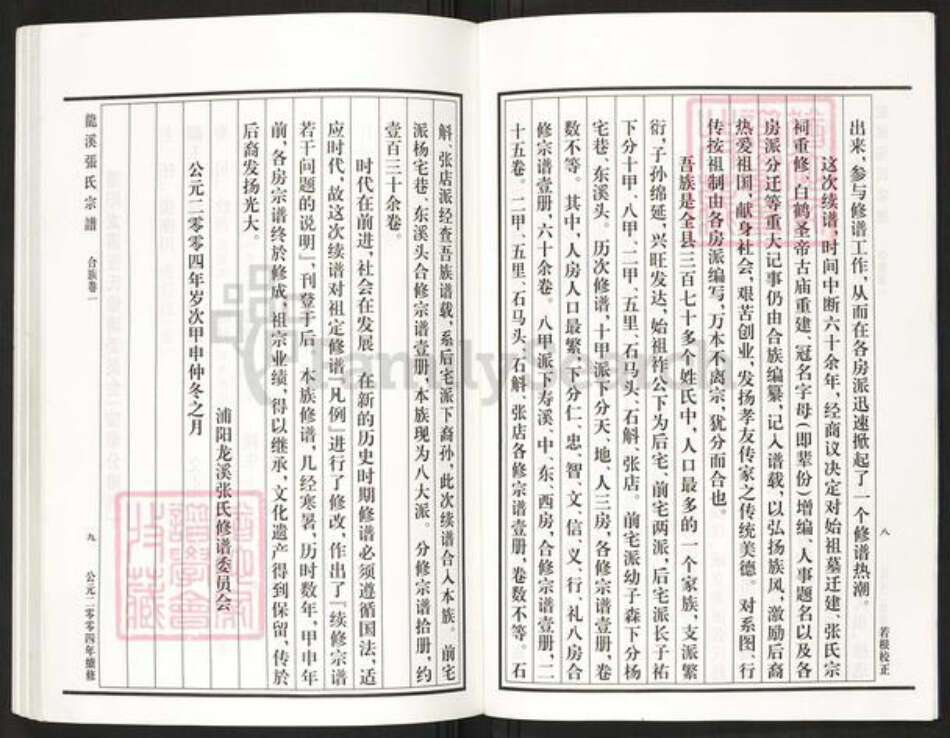 八
若根校正
出来,参与修谱工作,从而在各房派迅速掀起了一个修谱热潮。
这次续谱,时间中断六十余年,经商议决定对始祖墓迁建、张氏宗
祠重修、白鹤圣帝古庙重建、冠名字母(即辈份)增编、人事题名以及各
房派分迁等重大记事仍由合族编纂,记入谱载,以弘扬族风,激励后裔
热爱祖国,献身社会,艰苦创业,发扬孝友传家之传统美德。对系图、行
传按祖制由各房派编写,万本不离宗,犹分而合也。
吾族是全县三百七十多个姓氏中,人口最多的一个家族,支派繁
衍,子孙绵延,兴旺发达,始祖祚公下为后宅、前宅两派,后宅派长子祐
下分十甲、八甲、二甲、五里、石马头、石斛、张店。前宅派幼子森下分杨
宅巷、东溪头。历次修谱,十甲派下分天、地、人三房,各修宗谱壹册,卷
数不等。其中,人房人口最繁,下分仁、忠、智、文、信、义、行、礼八房合
修宗谱壹册,六十余卷。八甲派下寿溪、中、东、西房,合修宗谱壹册,二
十五卷。二甲、五里、石马头、石斛、张店各修宗谱壹册,卷数不等。石
斛、张店派经查吾族谱载,系后宅派下裔孙,此次续谱合入本族。前宅
派杨宅巷、东溪头合修宗谱壹册,本族现为八大派。分修宗谱拾册,约
壹百三十余卷。
时代在前进,社会在发展,在新的历史时期修谱必须遵循国法、适
应时代,故这次续谱对祖定修谱『凡例』进行了修改,作出了『续修宗谱
若干问题的说明』,刊登于后。本族修谱,几经寒暑,历时数年,甲申年
前,各房宗谱终於修成,祖宗业绩,得以继承,文化遗产得到保留,传於
后裔发扬光大。
浦阳龙溪张氏修谱委员会
公元二零零四年岁次甲申仲冬之月
龍溪張氏宗譜
合族卷一
九
公元二零零四年續修
FamilySearch